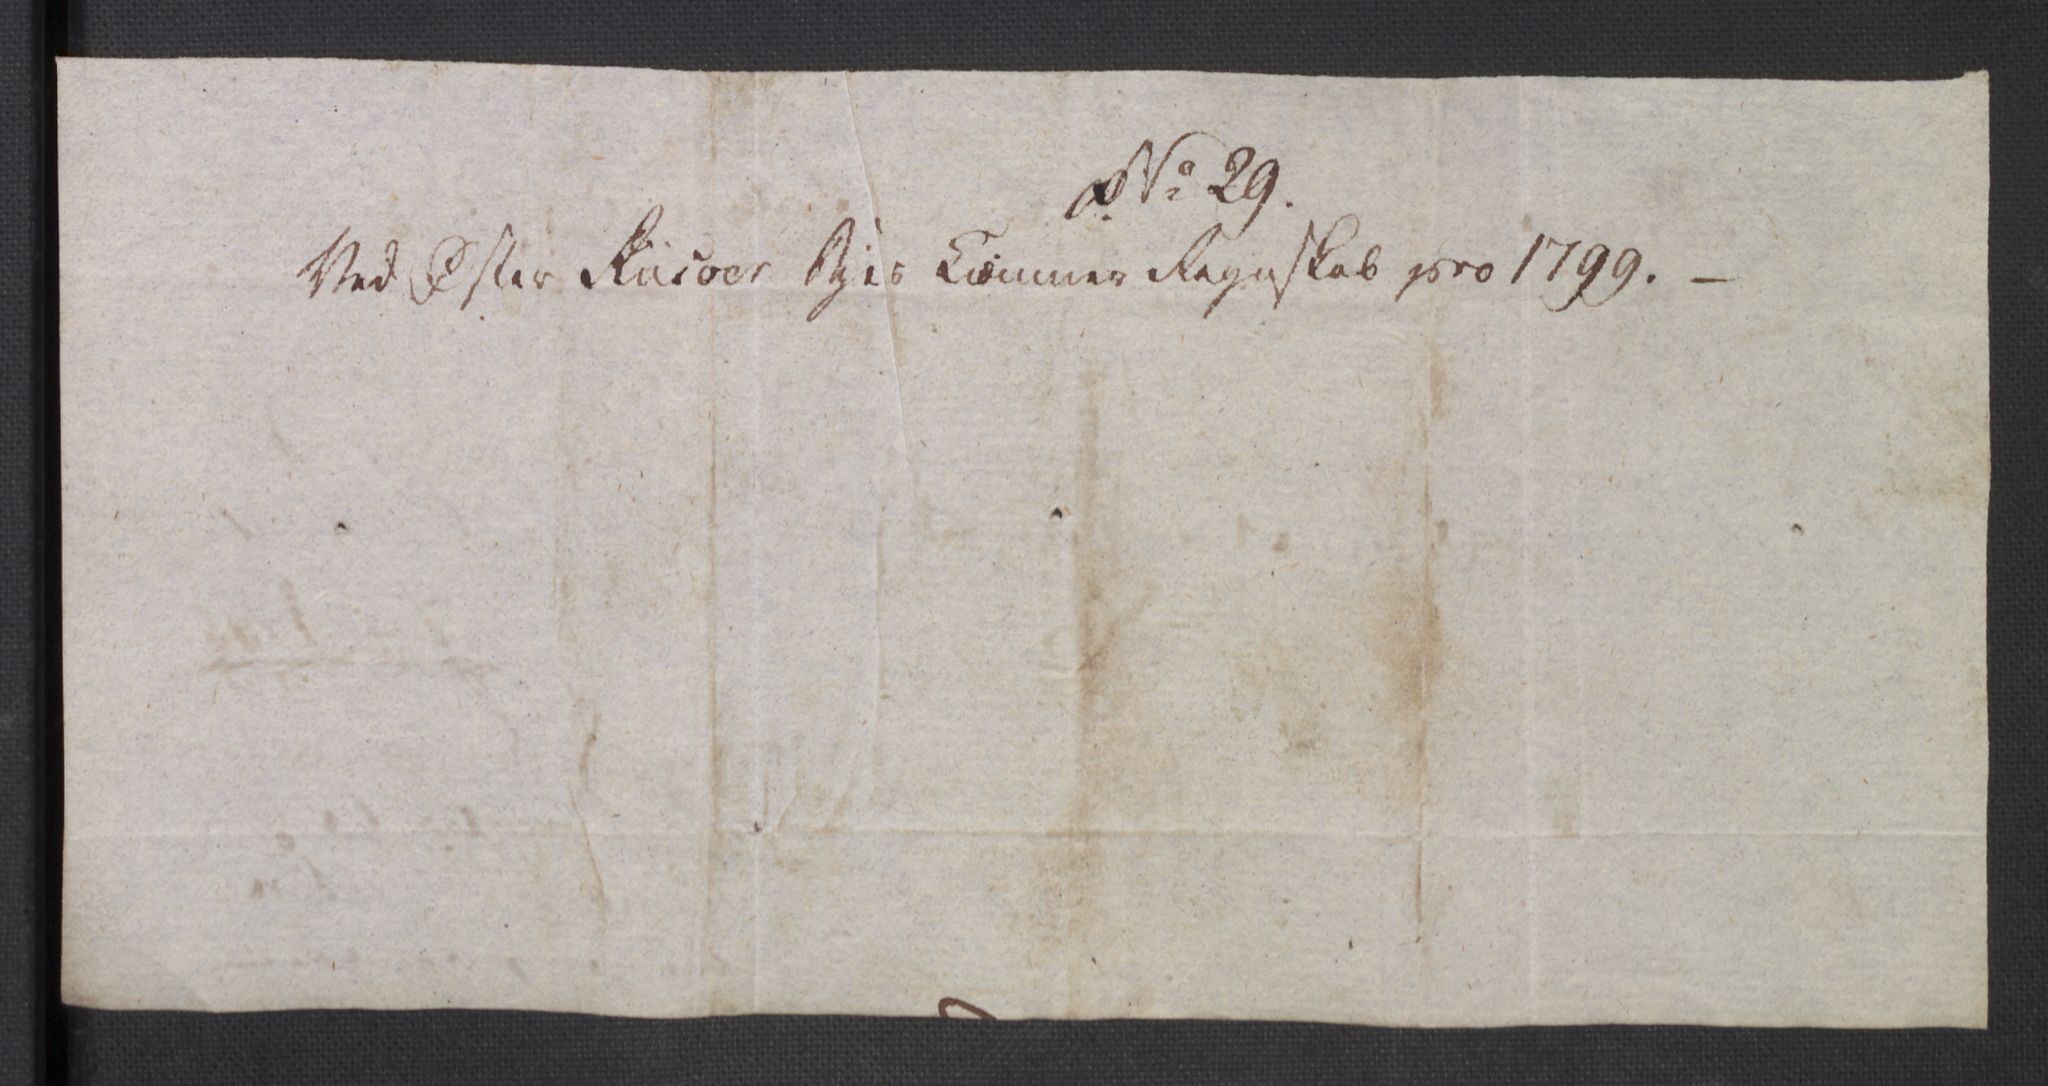 No 29.
Ved Øster Riisoer Byes Cæmner Regnskab pro 1799. —